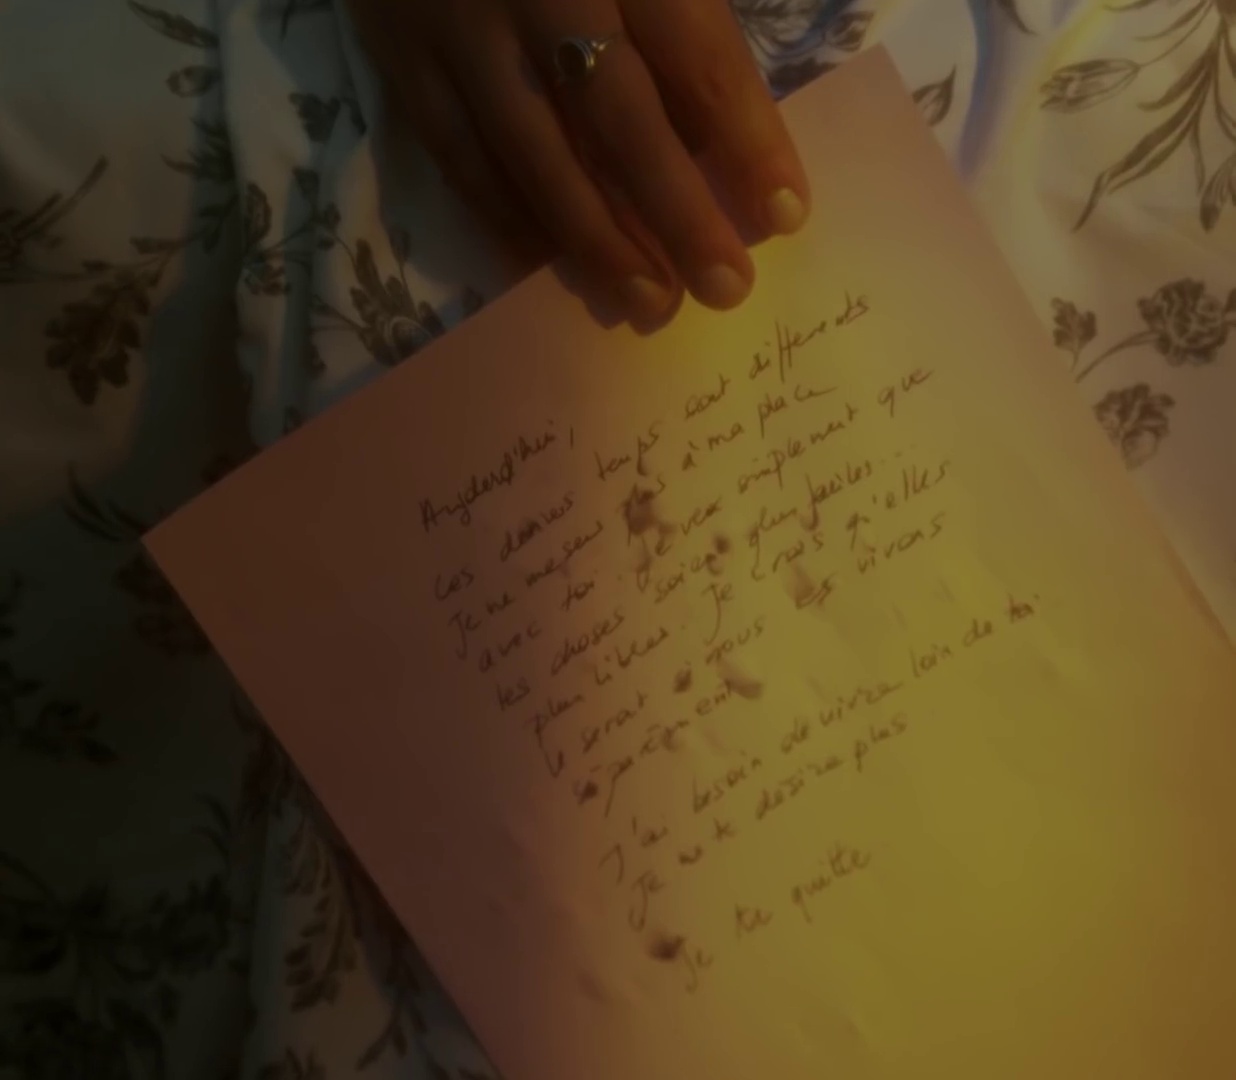 Aujourd'hui,
Ces derniers temps sont différents
Je ne me sens plus à ma place
avec toi. Je veux simplement que
les choses soient plus faciles...
plus libres. Je crois qu'elles
le seront si nous les vivons
séparément
J'ai besoin de vivre loin de toi.
Je ne te désire plus
Je te quitte